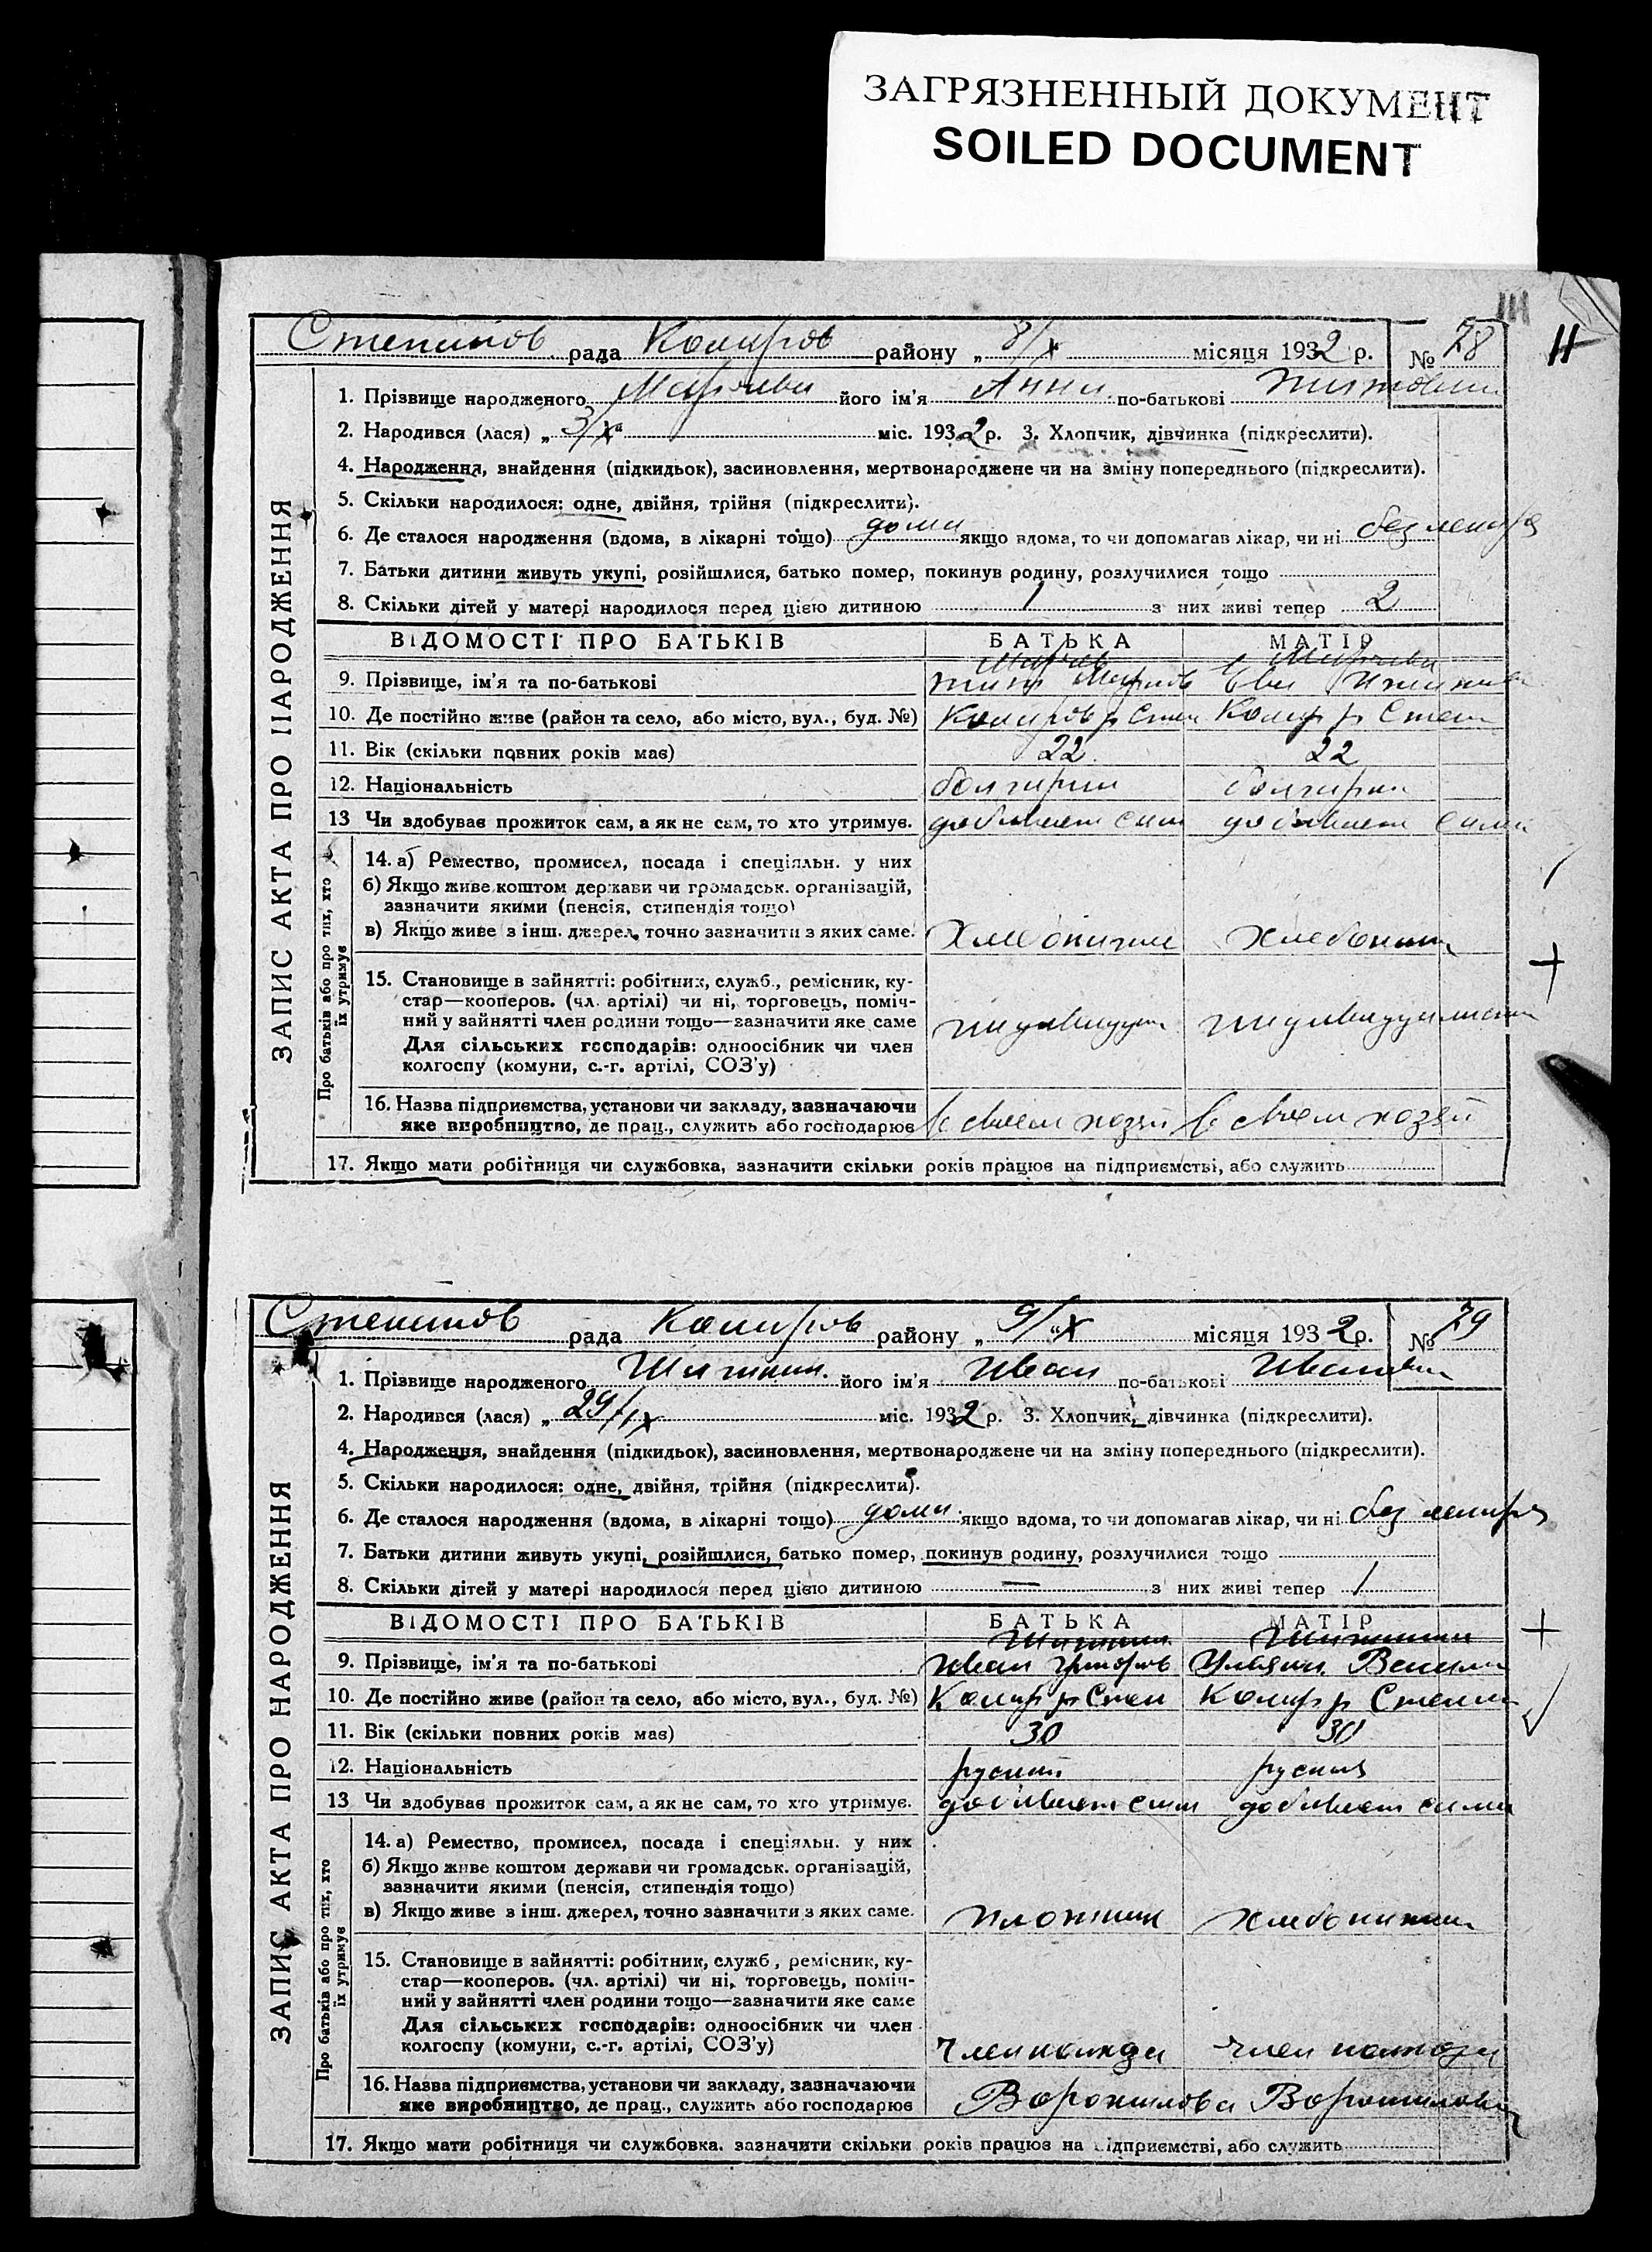 ЗАГРЯЗНЕННЫЙ ДОКУМЕНТ
SOILED DOCUMENT
111
Степанов рада Комиров району „ 8/X місяця 1932 р. № 78
1. Прізвище народженого його ім'я Анна по-батькові
2. Народився (лася) „ 3/X “ міс. 1932 р. 3. Хлопчик, дівчинка (підкреслити).
4. Народження, знайдення (підкидьок), засиновлення, мертвонароджене чи на зміну попереднього (підкреслити).
5. Скільки народилося: одне, двійня, трійня (підкреслити).
6. Де сталося народження (вдома, в лікарні тощо) дома якщо вдома, то чи допомагав лікар, чи ні без лекаря
7. Батьки дитини живуть укупі, розійшлися, батько помер, покинув родину, розлучилися тощо
8. Скільки дітей у матері народилося перед цією дитиною 1 з них живі тепер 2
ЗАПИС АКТА ПРО НАРОДЖЕННЯ
ВІДОМОСТІ ПРО БАТЬКІВ БАТЬКА МАТІР
9. Прізвище, ім'я та по-батькові
10. Де постійно живе (район та село, або місто, вул., буд. №) Комиров р Степ Комир р Степ
11. Вік (скільки повних років має) 22 22
12. Національність болгарин болгарка
13 Чи здобував прожиток сам, а як не сам, то хто утримує. добивает сам добивает сама
Про батьків або про тих, хто їх утримує
14. а) Ремество, промисел, посада і спеціяльн. у них
б) Якщо живе коштом держави чи громадськ. організацій,
зазначити якими (пенсія, стипендія тощо)
в) Якщо живе з інш. джерел, точно зазначити з яких саме.
15. Становище в зайнятті: робітник, служб., ремісник, ку-
стар—кооперов. (чл. артілі) чи ні, торговець, поміч-
ний у зайнятті член родини тощо—зазначити яке саме
Для сільських господарів: одноосібник чи член
колгоспу (комуни, с.-г. артілі, СОЗ'у)
16. Назва підприємства, установи чи закладу, зазначаючи
яке виробництво, де прац., служить або господарює в своем хозяй в своем хозяй
17. Якщо мати робітниця чи службовка, зазначити скільки років працює на підприємстві, або служить
Степанов рада Комиров району „ 9/X “ місяця 1932 р. № 79
1. Прізвище народженого його ім'я Иван по-батькові Иванович
2. Народився (лася) „ 29/IX міс. 1932 р. 3. Хлопчик, дівчинка (підкреслити).
4. Народження, знайдення (підкидьок), засиновлення, мертвонароджене чи на зміну попереднього (підкреслити).
5. Скільки народилося: одне, двійня, трійня (підкреслити).
6. Де сталося народження (вдома, в лікарні тощо) дома якщо вдома, то чи допомагав лікар, чи ні без лекаря
7. Батьки дитини живуть укупі, розійшлися, батько помер, покинув родину, розлучилися тощо
8. Скільки дітей у матері народилося перед цією дитиною — з них живі тепер 1
ЗАПИС АКТА ПРО НАРОДЖЕННЯ
ВІДОМОСТІ ПРО БАТЬКІВ БАТЬКА МАТІР
9. Прізвище, ім'я та по-батькові Иван Ульяна
10. Де постійно живе (район та село, або місто, вул., буд. №) Комир р Степ Комир р Степ
11. Вік (скільки повних років має) 30 30
12. Національність руский руская
13 Чи здобував прожиток сам, а як не сам, то хто утримує. добивает сам добивает сама
Про батьків або про тих, хто їх утримує
14. а) Ремество, промисел, посада і спеціяльн. у них
б) Якщо живе коштом держави чи громадськ. організацій,
зазначити якими (пенсія, стипендія тощо)
в) Якщо живе з інш. джерел, точно зазначити з яких саме.
15. Становище в зайнятті: робітник, служб., ремісник, ку-
стар—кооперов. (чл. артілі) чи ні, торговець, поміч-
ний у зайнятті член родини тощо—зазначити яке саме
Для сільських господарів: одноосібник чи член
колгоспу (комуни, с.-г. артілі, СОЗ'у) член колхоза член колхоза
16. Назва підприємства, установи чи закладу, зазначаючи
яке виробництво, де прац., служить або господарює Ворошилова Ворошилова
17. Якщо мати робітниця чи службовка. зазначити скільки років працює на підприємстві, або служить